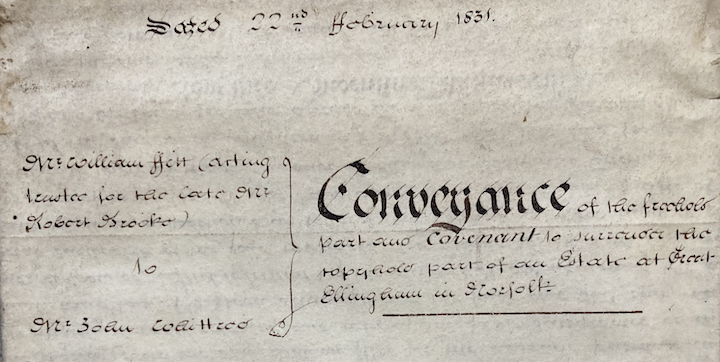 Dated 22nd February 1831.
Mr. William ffitt (acting
trustee for the late Mr
Robert Brooke)
to
Mr. John Whittred
Conveyance of the freehold
part and Covenant to surrender the
copyhold part of an Estate at Great
Ellingham in Norfolk